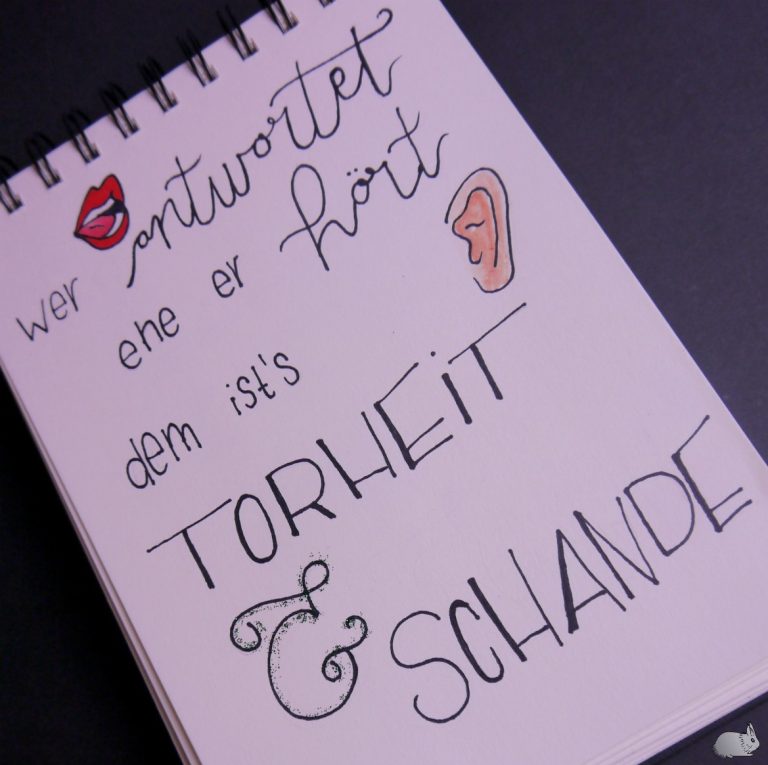 wer antwortet
ehe er hört
dem ist's
TORHEiT
& SCHANDE